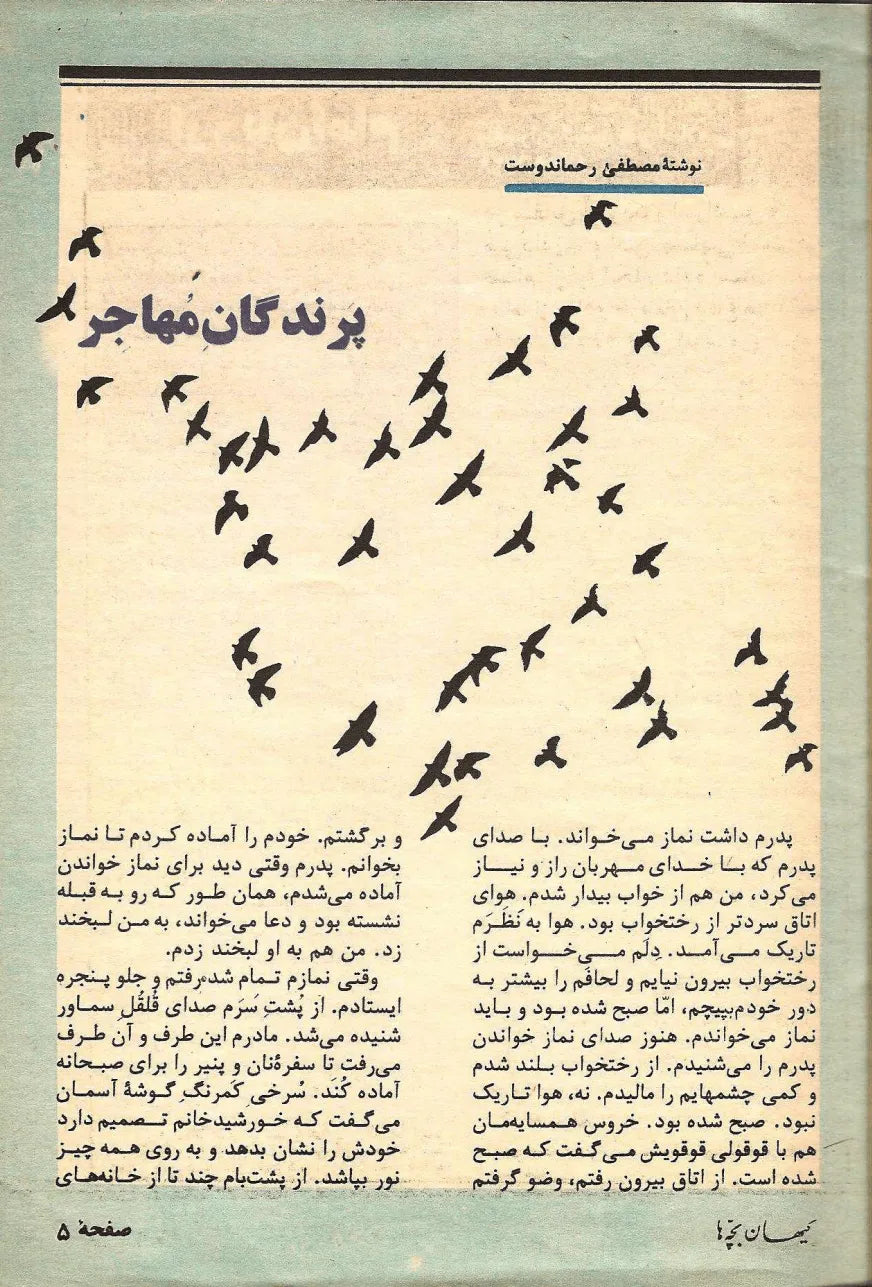 نوشتهٔ مصطفیٰ رحماندوست
پرندگانِ مُهاجِر
پدرم داشت نماز می‌خواند. با صدای
پدرم که با خدای مهربان راز و نیاز
می‌کرد، من هم از خواب بیدار شدم. هوای
اتاق سردتر از رختخواب بود. هوا به نَظَرَم
تاریک می‌آمد. دِلَم می‌خواست از
رختخواب بیرون نیایم و لحافَم را بیشتر به
دور خودم‌بپیچم، امّا صبح شده بود و باید
نماز می‌خواندم. هنوز صدای نماز خواندن
پدرم را می‌شنیدم. از رختخواب بلند شدم
و کمی چشمهایم را مالیدم. نه، هوا تاریک
نبود. صبح شده بود. خروس همسایه‌مان
هم با قوقولی قوقویش می‌گفت که صبح
شده است. از اتاق بیرون رفتم، وضو گرفتم
و برگشتم. خودم را آماده کردم تا نماز
بخوانم. پدرم وقتی دید برای نماز خواندن
آماده می‌شدم، همان طور که رو به قبله
نشسته بود و دعا می‌خواند، به من لبخند
زد. من هم به او لبخند زدم.
وقتی نمازم تمام شد،رفتم و جلو پنجره
ایستادم. از پُشتِ سَرَم صدای قُلقُلِ سماور
شنیده می‌شد. مادرم این طرف و آن طرف
می‌رفت تا سفرهٔنان و پنیر را برای صبحانه
آماده کُنَد. سُرخیِ کَمرنگِ گوشهٔ آسمان
می‌گفت که خورشیدخانم تصمیم دارد
خودش را نشان بدهد و به روی همه چیز
نور بپاشد. از پشت‌بام چند تا از خانه‌های
کیهان بچّه‌ها
صفحهٔ ۵